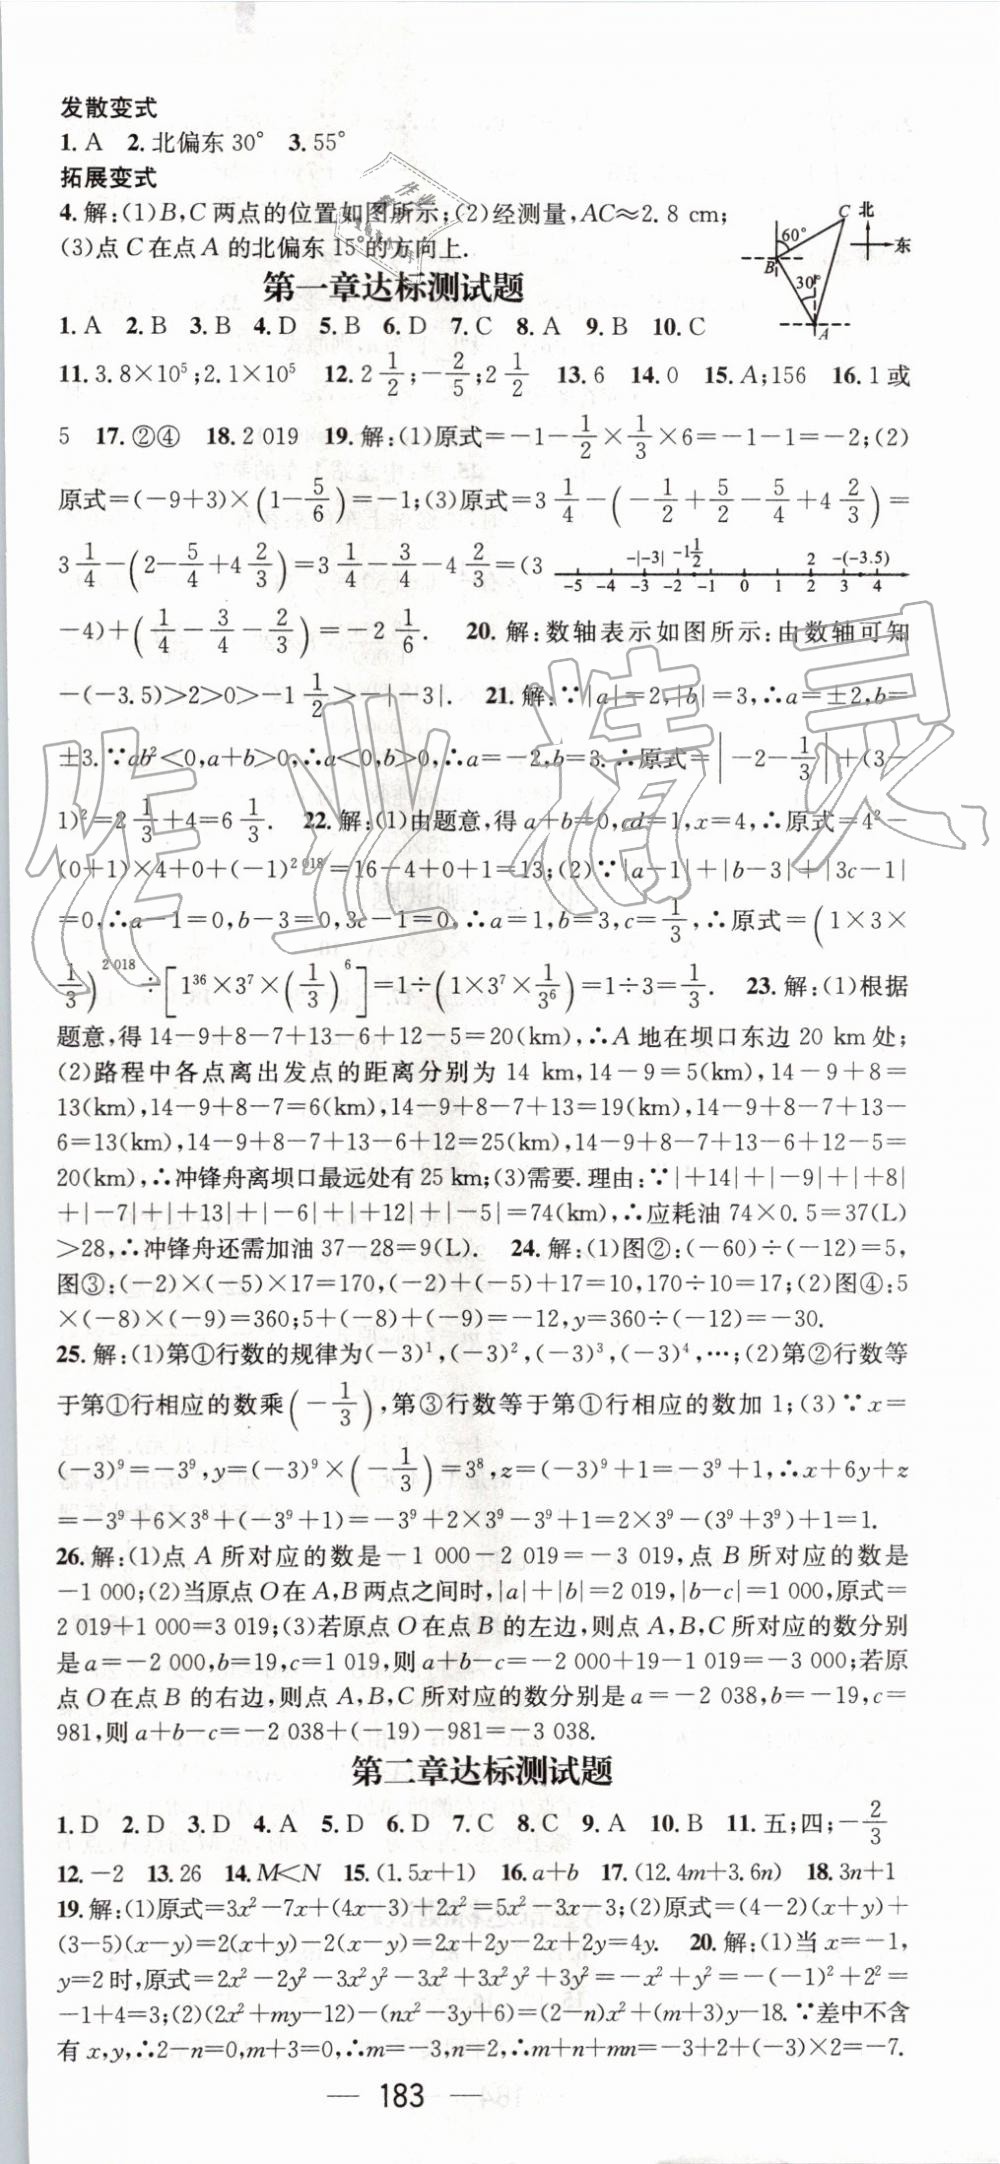 发散变式
1. A  2. 北偏东 30°  3. 55°
拓展变式
4. 解:(1)B,C 两点的位置如图所示;(2)经测量,AC≈2.8 cm;
(3)点 C 在点 A 的北偏东 15 的方向上.
C 北 东 60° B 30° A
第一章达标测试题
1. A  2. B  3. B  4. D  5. B  6. D  7. C  8. A  9. B  10. C
11. 3.8×10⁵;2.1×10⁵  12. 2 1/2;−2/5;2 1/2  13. 6  14. 0  15. A;156  16. 1 或
5  17. ②④  18. 2 019  19. 解:(1)原式=−1−1/2×1/3×6=−1−1=−2;(2)
原式=(−9+3)×(1−5/6)=−1;(3)原式=3 1/4−(−1/2+5/2−5/4+4 2/3)=
3 1/4−(2−5/4+4 2/3)=3 1/4−3/4−4 2/3=(3
−|−3| −1 1/2 2 −(−3.5)
−5 −4 −3 −2 −1 0 1 2 3 4
−4)+(1/4−3/4−2/3)=−2 1/6.  20. 解:数轴表示如图所示:由数轴可知
−(−3.5)>2>0>−1 1/2>−|−3|.  21. 解:∵|a|=2,|b|=3,∴a=±2,b=
±3.∵ab²<0,a+b>0,∴a<0,b>0,∴a=−2,b=3.∴原式=|−2−1/3|+(3−
1)²=2 1/3+4=6 1/3.  22. 解:(1)由题意,得 a+b=0,cd=1,x=4,∴原式=4²−
(0+1)×4+0+(−1)²⁰¹⁸=16−4+0+1=13;(2)∵|a−1|+|b−3|+|3c−1|
=0,∴a−1=0,b−3=0,3c−1=0,∴a=1,b=3,c=1/3,∴原式=(1×3×
1/3)²⁰¹⁸÷[1³⁶×3⁷×(1/3)⁶]=1÷(1×3⁷×1/3⁶)=1÷3=1/3.  23. 解:(1)根据
题意,得 14−9+8−7+13−6+12−5=20(km),∴A 地在坝口东边 20 km处;
(2)路程中各点离出发点的距离分别为 14 km,14−9=5(km),14−9+8=
13(km),14−9+8−7=6(km),14−9+8−7+13=19(km),14−9+8−7+13−
6=13(km),14−9+8−7+13−6+12=25(km),14−9+8−7+13−6+12−5=
20(km),∴冲锋舟离坝口最远处有 25 km;(3)需要.理由:∵|+14|+|−9|+|+8|
+|−7|+|+13|+|−6|+|+12|+|−5|=74(km),∴应耗油 74×0.5=37(L)
>28,∴冲锋舟还需加油 37−28=9(L).  24. 解:(1)图②:(−60)÷(−12)=5,
图③:(−2)×(−5)×17=170,(−2)+(−5)+17=10,170÷10=17;(2)图④:5
×(−8)×(−9)=360;5+(−8)+(−9)=−12,y=360÷(−12)=−30.
25. 解:(1)第①行数的规律为(−3)¹,(−3)²,(−3)³,(−3)⁴,…;(2)第②行数等
于第①行相应的数乘(−1/3),第③行数等于第①行相应的数加 1;(3)∵x=
(−3)⁹=−3⁹,y=(−3)⁹×(−1/3)=3⁸,z=(−3)⁹+1=−3⁹+1,∴x+6y+z
=−3⁹+6×3⁸+(−3⁹+1)=−3⁹+2×3⁹−3⁹+1=2×3⁹−(3⁹+3⁹)+1=1.
26. 解:(1)点 A 所对应的数是−1 000−2 019=−3 019,点 B 所对应的数是
−1 000;(2)当原点 O 在 A,B 两点之间时,|a|+|b|=2 019,|b−c|=1 000,原式=
2 019+1 000=3 019;(3)若原点 O 在点 B 的左边,则点 A,B,C 所对应的数分别
是 a=−2 000,b=19,c=1 019,则 a+b−c=−2 000+19−1 019=−3 000;若原
点 O 在点 B 的右边,则点 A,B,C 所对应的数分别是 a=−2 038,b=−19,c=
981,则 a+b−c=−2 038+(−19)−981=−3 038.
第二章达标测试题
1. D  2. D  3. D  4. A  5. D  6. D  7. C  8. C  9. A  10. B  11. 五;四;−2/3
12. −2  13. 26  14. M<N  15. (1.5x+1)  16. a+b  17. (12.4m+3.6n)  18. 3n+1
19. 解:(1)原式=3x²−7x+(4x−3)+2x²=5x²−3x−3;(2)原式=(4−2)(x+y)+
(3−5)(x−y)=2(x+y)−2(x−y)=2x+2y−2x+2y=4y.  20. 解:(1)当 x=−1,
y=2 时,原式=2x²−2y²−3x²y²−3x²+3x²y²+3y²=−x²+y²=−(−1)²+2²=
−1+4=3;(2)(2x²+my−12)−(nx²−3y+6)=(2−n)x²+(m+3)y−18.∵差中不含
有 x,y,∴2−n=0,m+3=0,∴m=−3,n=2,∴m+n+mn=−3+2+(−3)×2=−7.
— 183 —
作业精灵